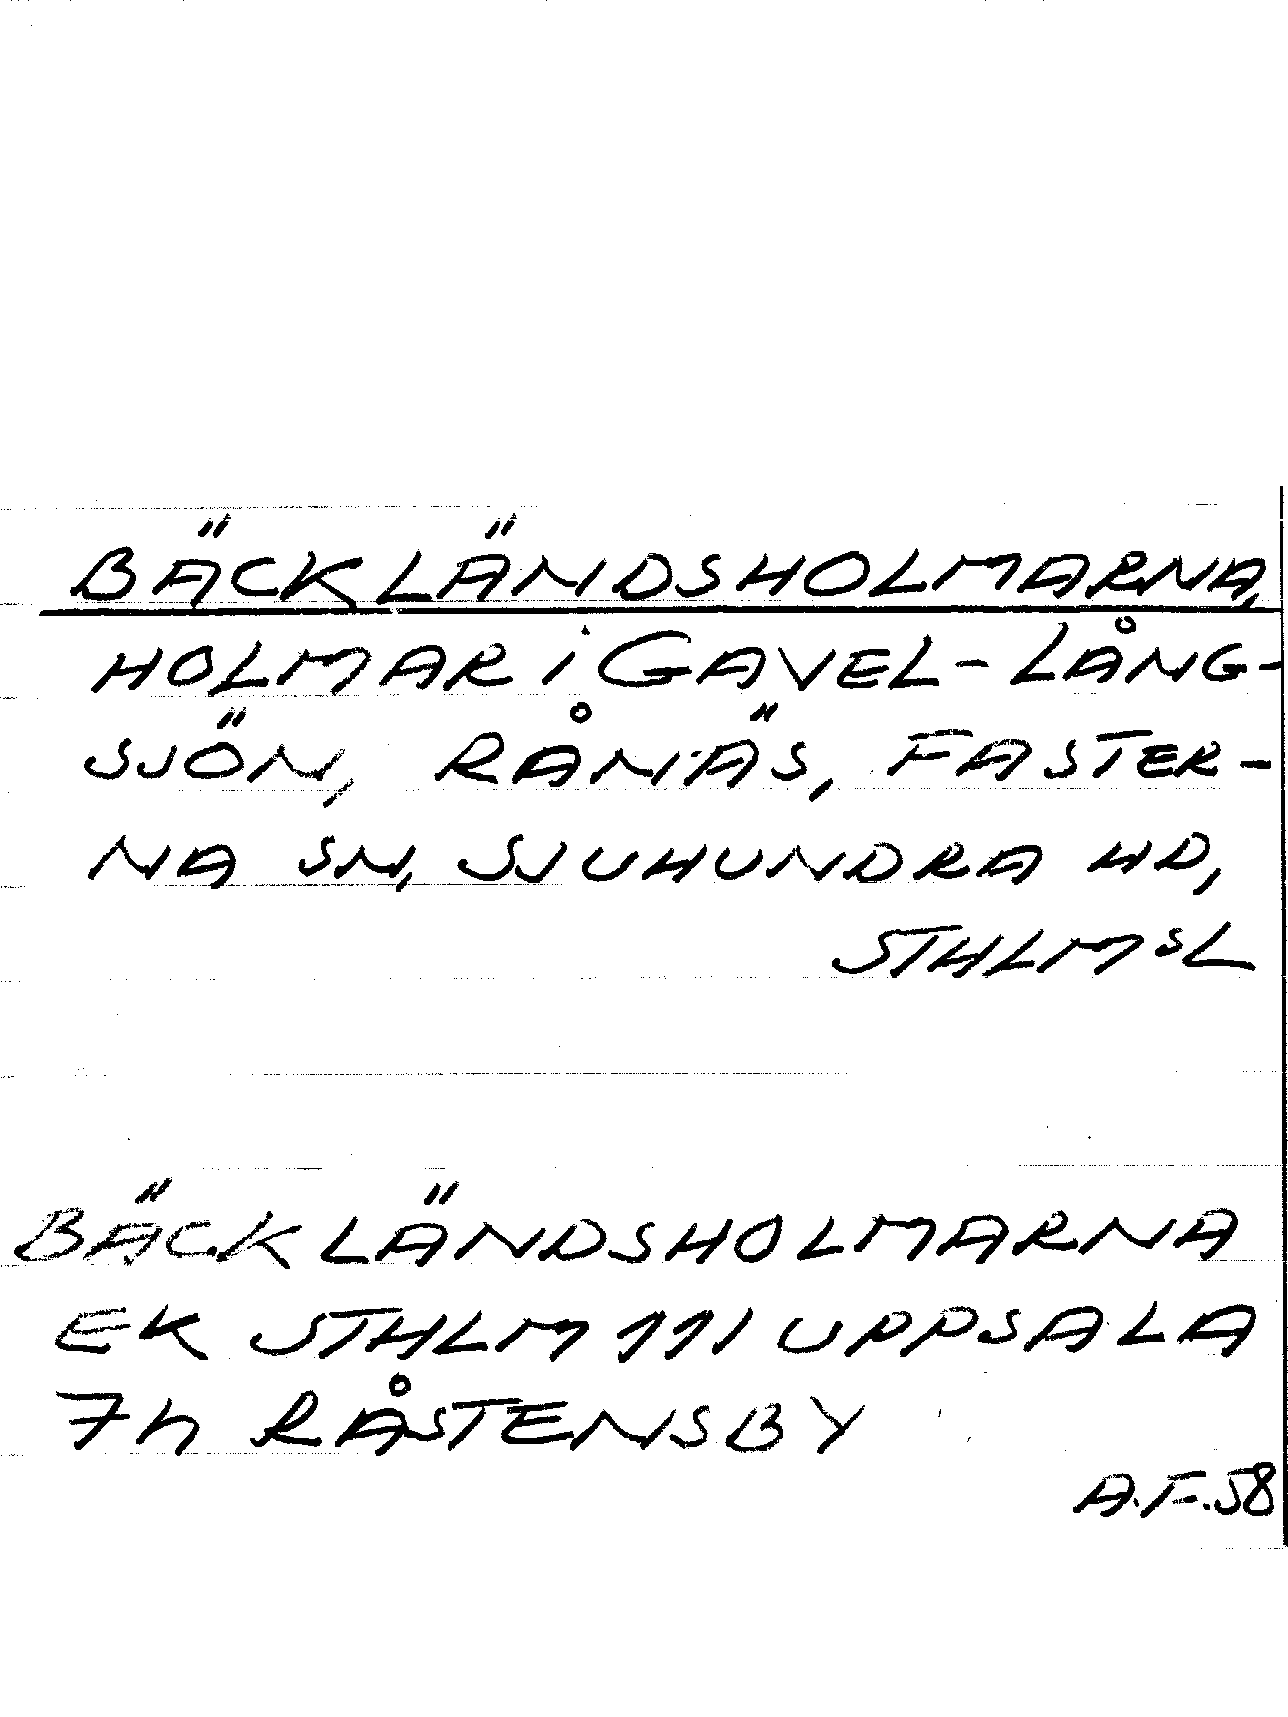 BÄCKLÄNDSHOLMARNA,
HOLMAR i GAVEL-LÅNG-
SJÖN, RÅNÄS, FASTER-
NA SN, SJUHUNDRA HD,
STHLMSL
BÄCKLÄNDSHOLMARNA
EK STHLM 111 UPPSALA
7h RÅSTENSBY
A.F.58